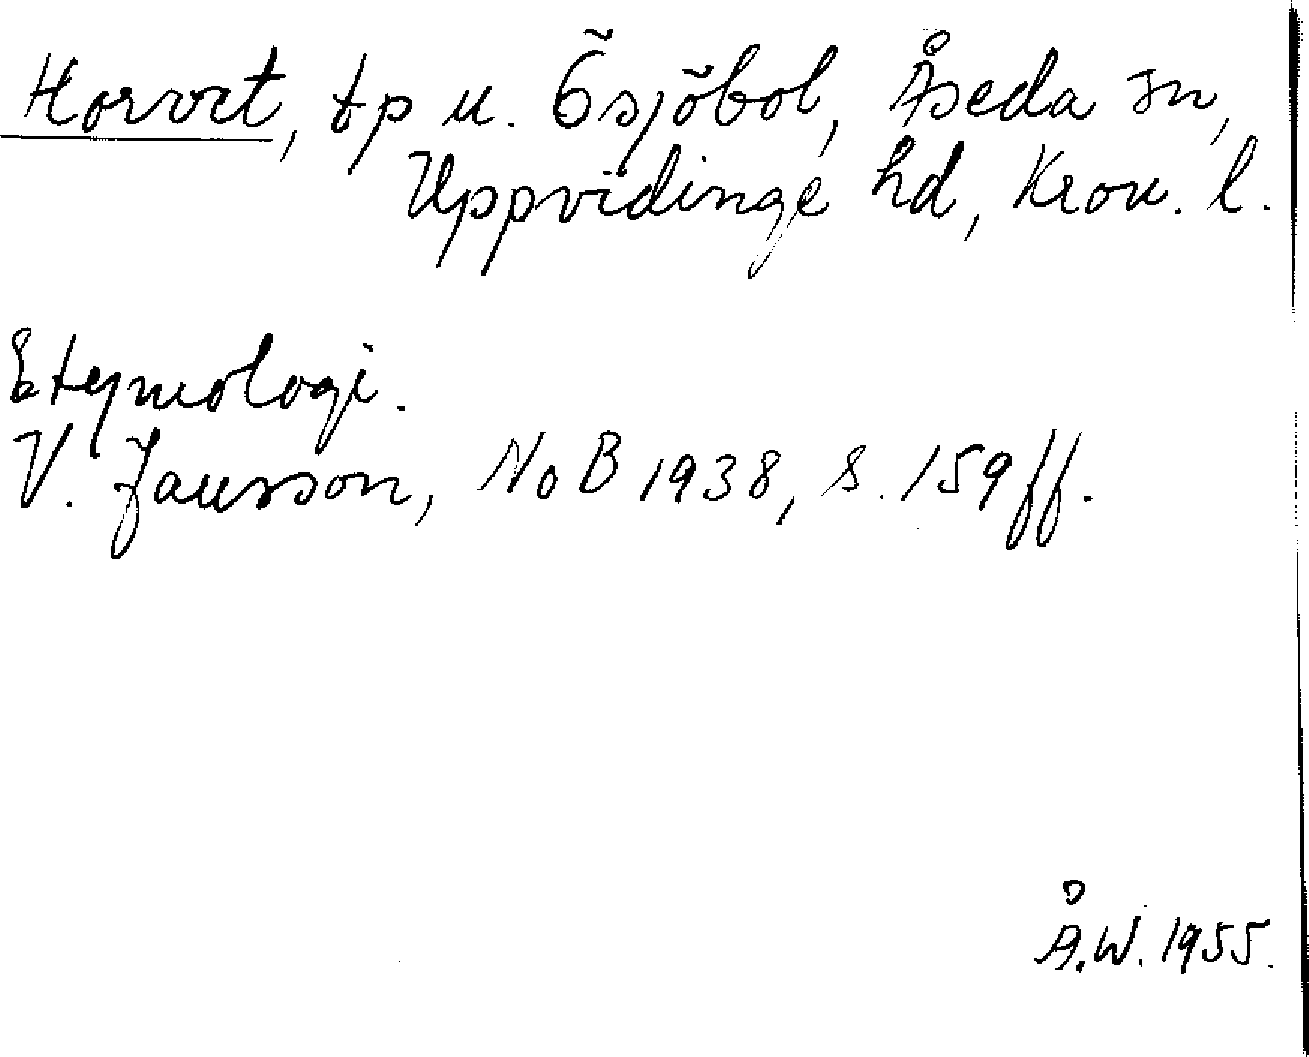 Horvet, tp u. Ösjöbol, Åseda sn,
Uppvidinge hd, Kron. l.
Etymologi.
V. Jansson, NoB 1938, s. 159 ff.
Å.W. 1955.